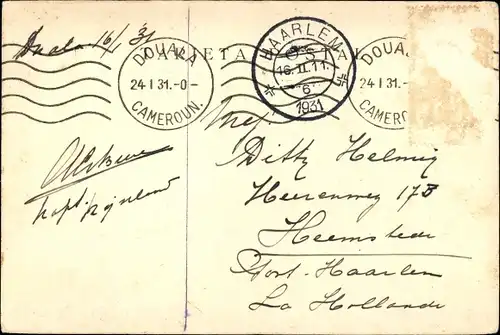 Duala 16/1 31
DOUALA
24 I 31.-0
CAMEROUN.
HAARLEM
16.II.11.
6
1931
DOUALA
24 I 31.-0
CAMEROUN.
Mej.
Ditty Helmig
Heerenweg 17B
Heemstede
Post-Haarlem
La Hollande
kapt.